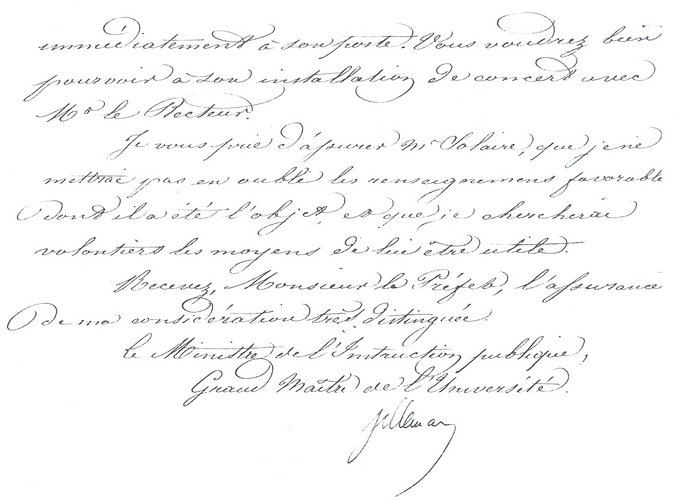 immédiatement à son poste. Vous voudrez bien
pourvoir à son installation de concert avec
Mr le Recteur.
Je vous prie d'assurer Mr Solaire, que je ne
mettrai pas en oubli les renseignemens favorable
dont il a été l'objet, et que je chercherai
volontiers les moyens de lui être utile.
Recevez, Monsieur le Préfet, l'assurance
de ma considération très distinguée.
Le Ministre de l'Instruction publique,
Grand Maître de l'Université.
Villemain